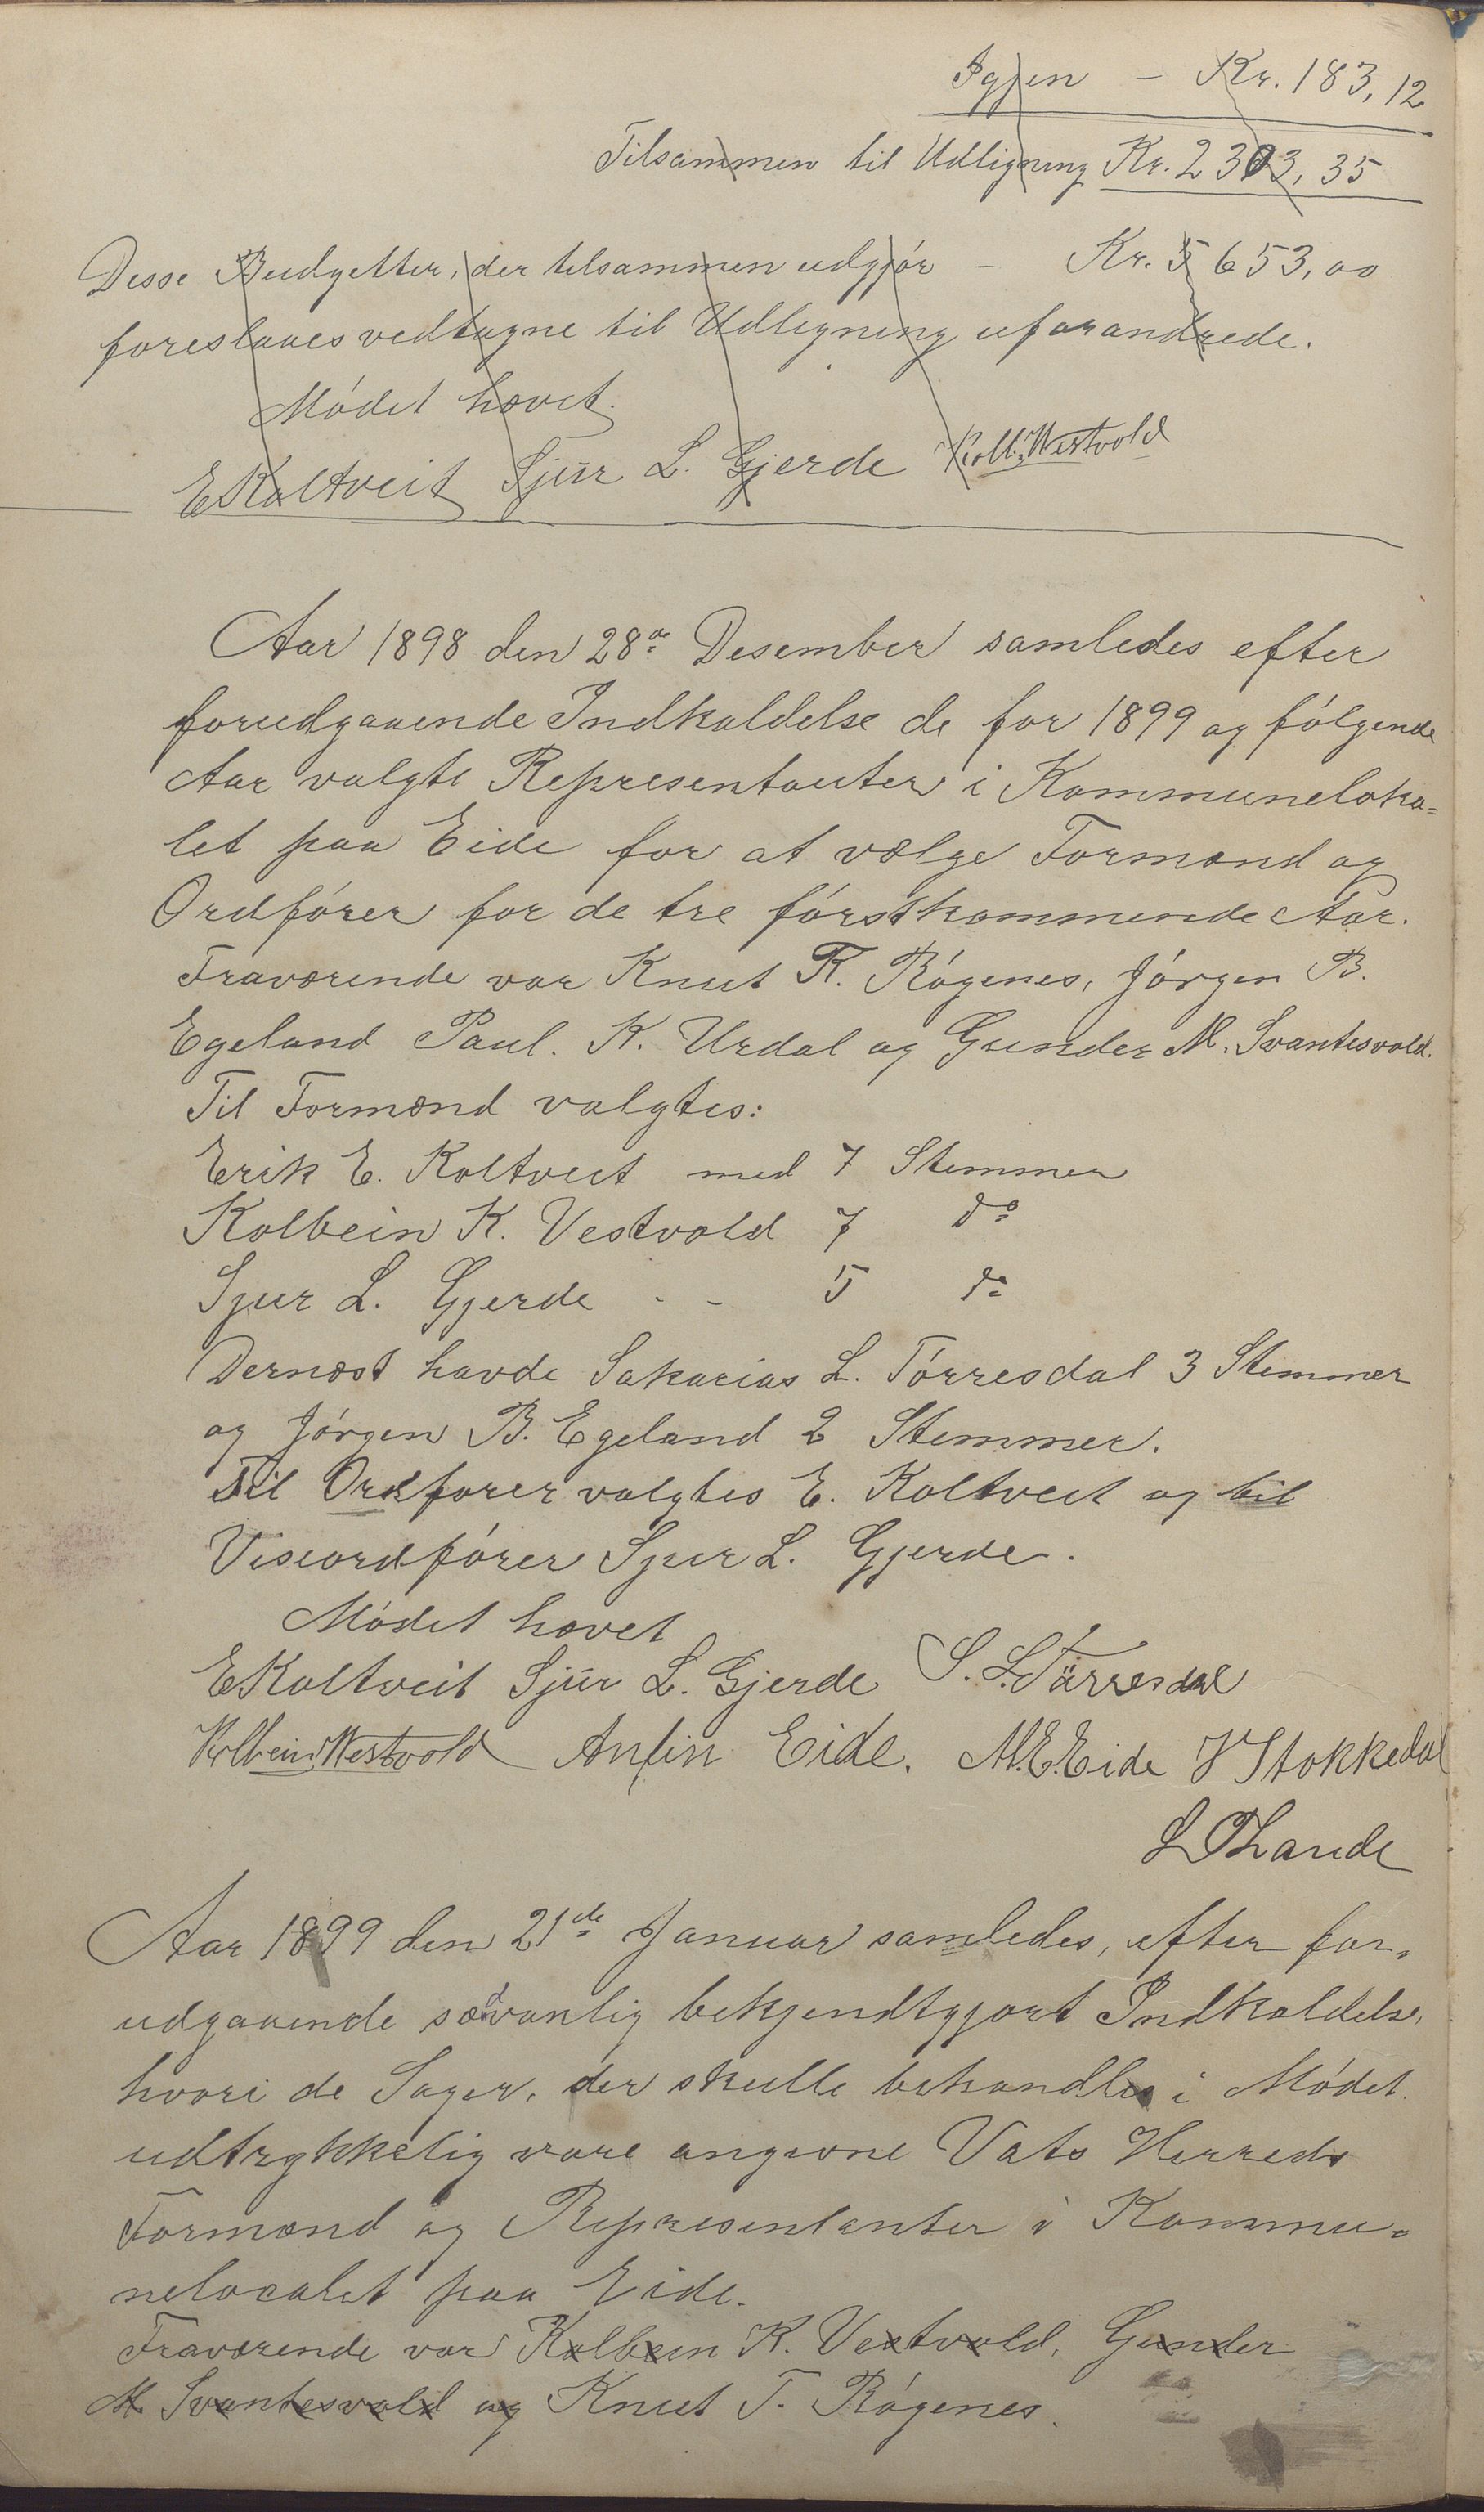 Igjen - Kr. 183,12
Tilsammen til Udligning Kr. 2303,35
Disse Budgetter, der tilsammen udgjør - Kr. 5653,00
foreslaaes vedtagne til Udligning uforandrede.
Mødet hævet.
EKoltveit Sjur L. Gjerde Kolb. Westvold
Aar 1898 den 28de Desember samledes efter
forudgaaende Indkaldelse de for 1899 og følgende
Aar valgte Representanter i Kommuneloka=
let paa Eide for at vælge Formænd og
Ordfører for de tre førstkommende Aar.
Fraværende var Knut T. Røgenes, Jørgen B.
Egeland Paul. K. Urdal og Gunder M. Svantesvold.
Til Formænd valgtes:
Erik E. Koltveit med 7 Stemmer
Kolbein K. Vestvold 7 do
Sjur L. Gjerde - - 5 do
Dernæst havde Sakarias L. Tørresdal 3 Stemmer
og Jørgen B. Egeland 2 Stemmer.
Til Ordfører valgtes E. Koltveit og til
Viseordfører Sjur L. Gjerde.
Mødet hævet
EKoltveit Sjur L. Gjerde S. L. Tørresdal
Kolbein Westvold Anfin Eide. M.E.Eide V Stokkedal
L O Lande
Aar 1899 den 21de Januar samledes, efter for=
udgaaende sædvanlig bekjendtgjort Indkaldelse,
hvori de Sager, der skulle behandles i Mødet
udtrykkelig vare angivne Vats Herreds
Formænd og Representanter i Kommu=
nelocalet paa Eide.
Fraværende var Kolbein K. Vestvold, Gunder
M Svantesvold og Knut T. Røgenes.